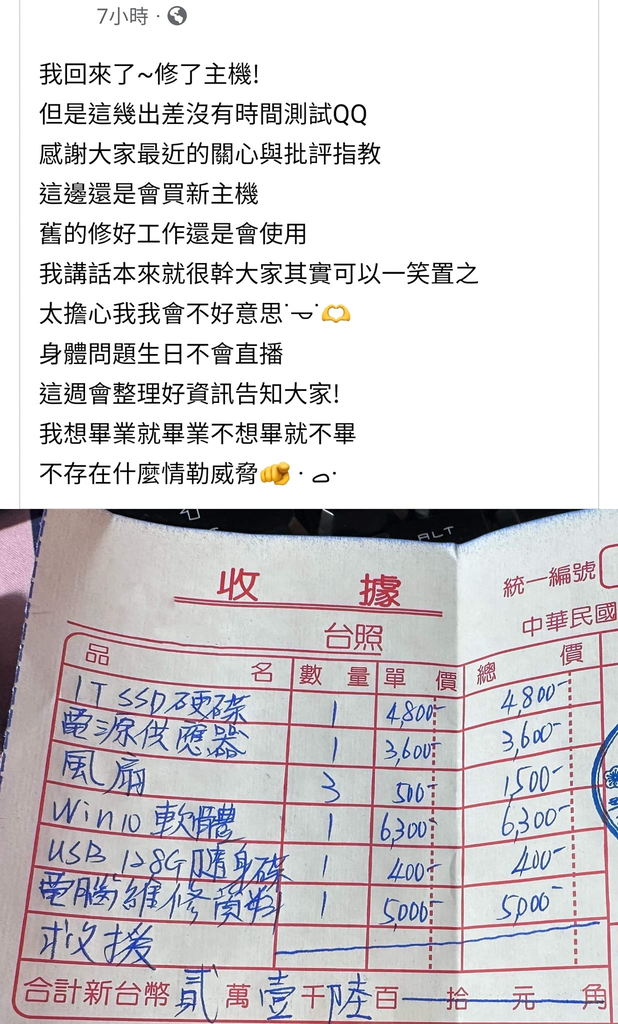 7小時 ·
我回來了~修了主機!
但是這幾出差沒有時間測試QQ
感謝大家最近的關心與批評指教
這邊還是會買新主機
舊的修好工作還是會使用
我講話本來就很幹大家其實可以一笑置之
太擔心我我會不好意思
身體問題生日不會直播
這週會整理好資訊告知大家!
我想畢業就畢業不想畢就不畢
不存在什麼情勒威脅
ALT
收據
統一編號
台照
中華民國
品名 數量 單價 總價
1T SSD硬碟 1 4,800- 4,800-
電源供應器 1 3,600- 3,600-
風扇 3 500- 1,500-
Win10 軟體 1 6,300- 6,300-
USB 128G隨身碟 1 400- 400-
電腦維修費料 1 5,000- 5,000-
救援
合計新台幣貳萬壹千陸百拾元角